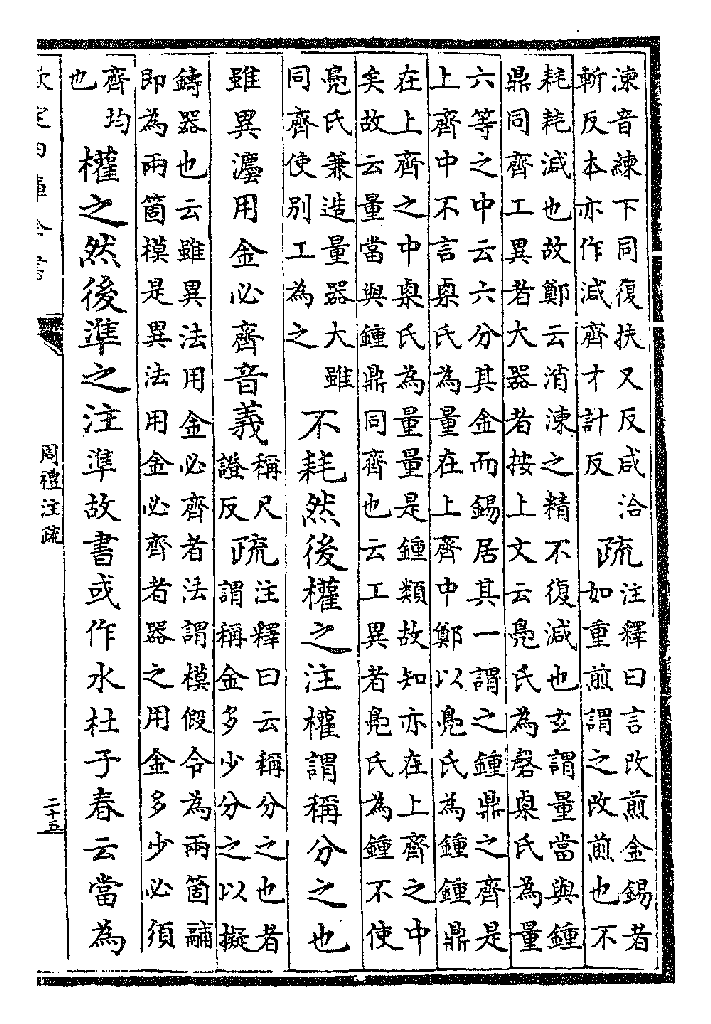 湅音練下同復扶又反咸洽
斬反本亦作減齊才計反
疏
注釋曰言改煎金錫者
如重煎謂之改煎也不
耗耗減也故鄭云消湅之精不復減也玄謂量當與鍾
鼎同齊工異者大器者按上文云鳧氏為磬㮚氏為量
六等之中云六分其金而錫居其一謂之鍾鼎之齊是
上齊中不言㮚氏為量在上齊中鄭以鳧氏為鍾鍾鼎
在上齊之中㮚氏為量量是鍾類故知亦在上齊之中
矣故云量當與鍾鼎同齊也云工異者鳧氏為鍾不使
鳧氏兼造量器大雖
同齊使別工為之
不耗然後權之注權謂稱分之也
雖異灋用金必齊音義
稱尺
證反
疏
注釋曰云稱分之也者
謂稱金多少分之以擬
鑄器也云雖異法用金必齊者法謂模假令為兩箇鬴
即為兩箇模是異法用金必齊者器之用金多少必須
齊均
也
權之然後準之注準故書或作水杜子春云當為
周禮注疏
二十五